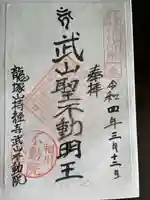 奉拝
令和四年三月十二日
武山聖不動明王
龍塚山持経寺武山不動院